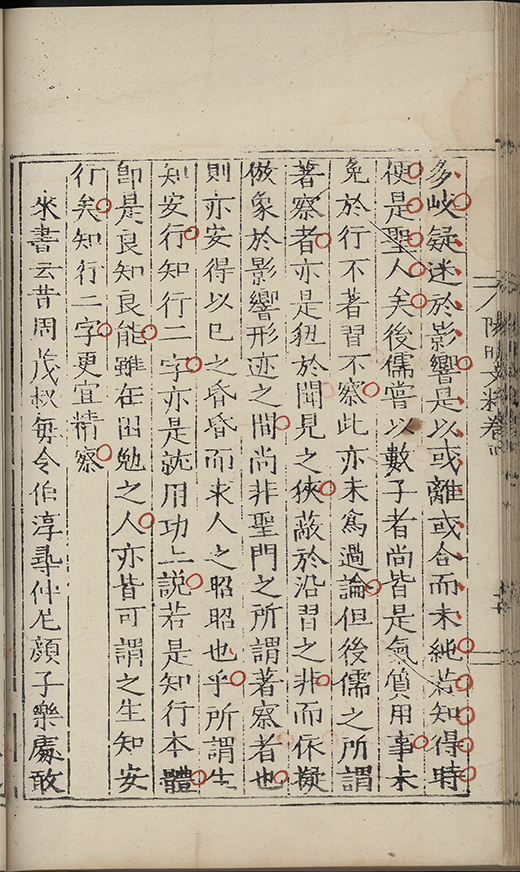 多岐疑迷於影響是以或離或合而未純若知得時
便是聖人矣後儒嘗以數子者尚皆是氣質用事未
免於行不著習不察此亦未為過論但後儒之所謂
著察者亦是狃於聞見之狹蔽於沿習之非而依擬
倣象於影響形迹之間尚非聖門之所謂著察者也
則亦安得以已之昏昏而求人之昭昭也乎所謂生
知安行知行二字亦是就用功上說若是知行本體
即是良知良能雖在困勉之人亦皆可謂之生知安
行矣知行二字更宜精察
來書云昔周茂叔每令伯淳尋仲尼顏子樂處敢